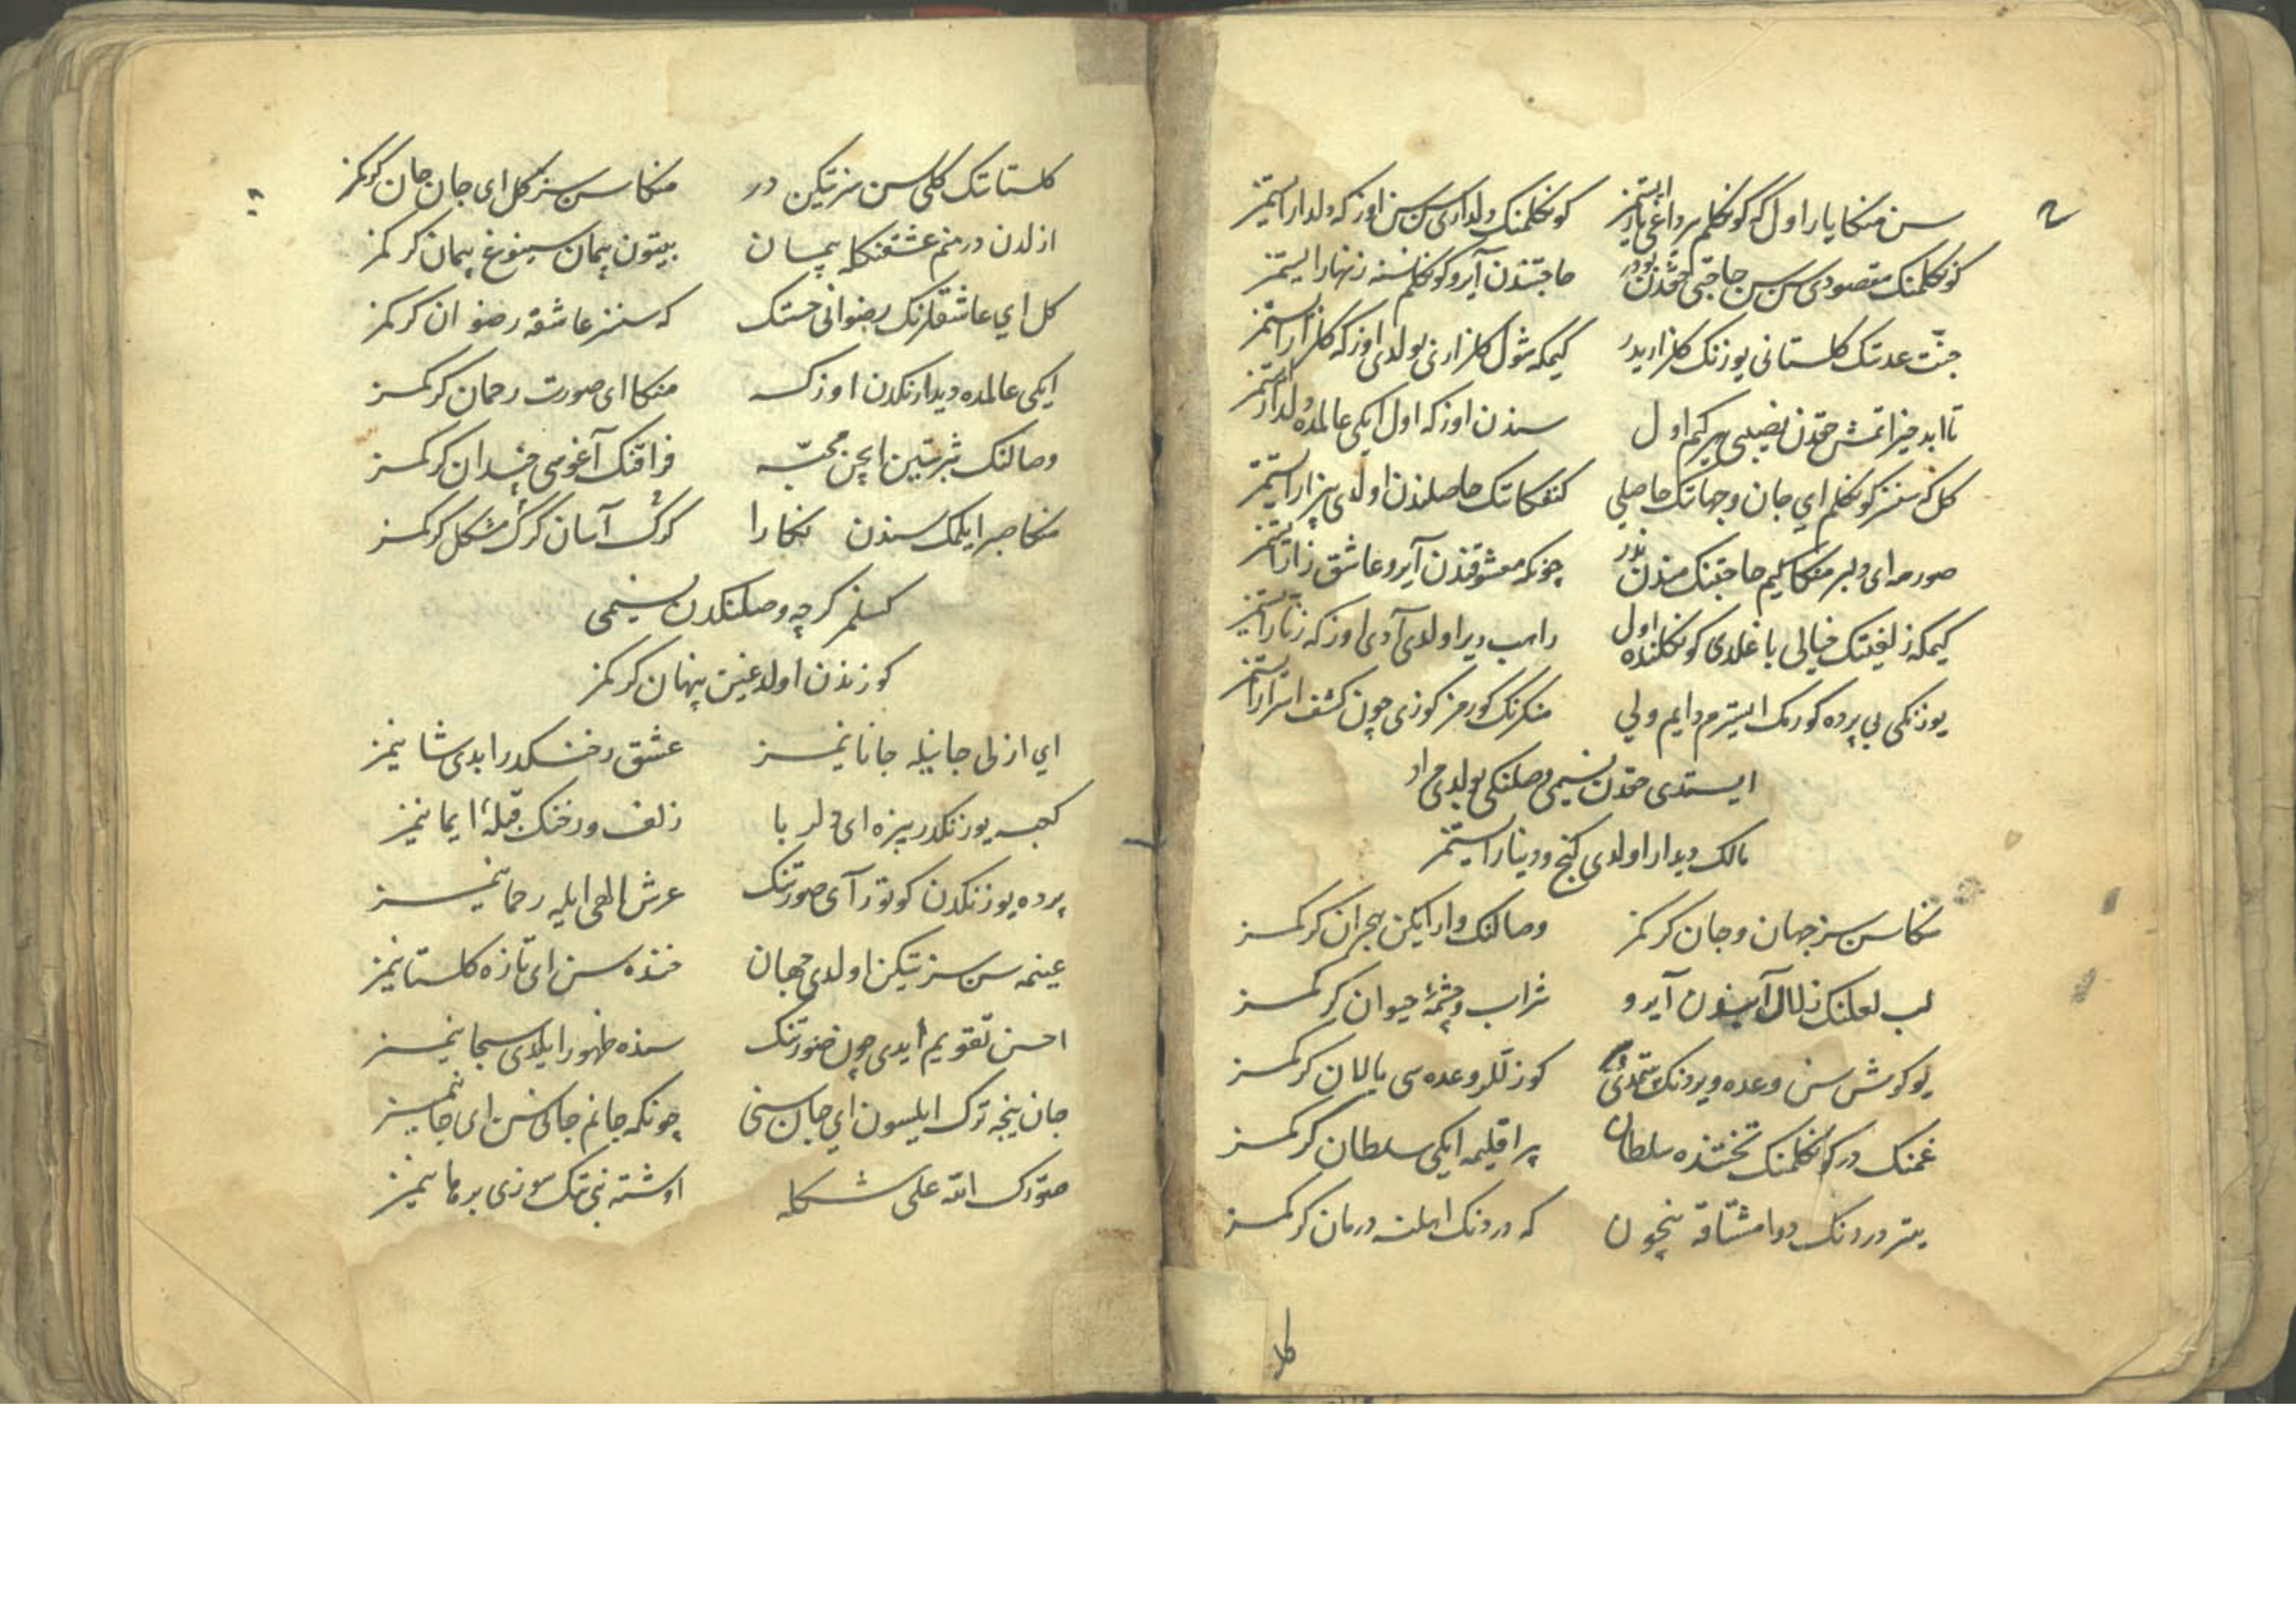 سن منکا یار اول که کونکلم برداغی یار ایستمز کونکلمنک دلداری سن سن اوزکه دلدار ایستمز
کونکلمنک مقصودی سن سن حاجتی حقدن بودر حاجتندن آیرو کونکلم نسنه زنهار ایستمز
جنّت عدنک کلستانی یوزنک کلزاریدر کیمکه شول کلزارنی بولدی اوزکه کلزار ایستمز
تا ابد حقدن نصیبی هر کیم اول سندن اوزکه اول ایکی عالمده دلدار ایستمز
کل که سنسز کونکلم ای جان و جهانک حاصلی حاصلندن اولدی بیزار ایستمز
صورمه ای دلبر منکا کیم حاجتنک مندن ندر چونکه معشوقندن آیرو عاشق زار ایستمز
کیمکه زلفینک خیالی باغلدی کونکلنده اول راهب دیر اولدی آدی اوزکه زنّار ایستمز
یوزنکی بی پرده کورمک ایسترم دایم ولی منکرنک کورمز کوزی چون کشف اسرار ایستمز
ایستدی حقدن نسیمی وصلنکی بولدی مراد
مالک دیدار اولدی کنج و دینار ایستمز
منکا سن سز جهان و جان کرکمز وصالنک وار ایکن هجران کرکمز
لب لعلنک زلال آبندن آیرو شراب و چشمهٔ حیوان کرکمز
یوکوش سن وعده ویردنک کوزللر وعده سی یالان کرکمز
غمنک در کونکلمنک تختنده سلطان بر اقلیمه ایکی سلطان کرکمز
یتر دردنک دوا مشتاقه نیچون که دردنک اهلنه درمان کرکمز
کل
کلستانک کلی سن سز تیکن در منکا سن سز کل ای جان جان کرکمز
ازلدن در منم عشقنکله پیمان بیتون پیمان سینوغ پیمان کرکمز
کل ای عاشقلرنک رضوانی جنتک که سنسز عاشقه رضوان کرکمز
ایکی عالمده دیدارنکدن اوزکه منکا ای صورت رحمان کرکمز
وصالنک شربتین ایچن محبّه فراقنک آغوسی چندان کرکمز
منکا صبر ایلمک سندن نکارا کرک آسان کرک مشکل کرکمز
کسلمز کرچه وصلنکدن نسیمی
کوزندن اولدغین پنهان کرکمز
ای ازلی جانیله جانانیمز عشق رخنکدر ابدی شانیمز
کعبه یوزنکدر بیزه ای دلربا زلف و رخنک قبلهٔ ایمانیمز
پرده یوزنکدن کوتور آی صورتنک عرش الهی ایله رحمانیمز
عینمه سن سز تیکن اولدی جهان خنده سن ای تازه کلستانیمز
احسن تقویم ایدی چون صورتنک سنده ظهور ایلدی سبحانیمز
جان نیجه ترک ایلسون ای جان سنی چونکه جانم جانی سن ای جانیمز
صوّرک الله علی شکله اوشته نبی نک سوزی برهانیمز